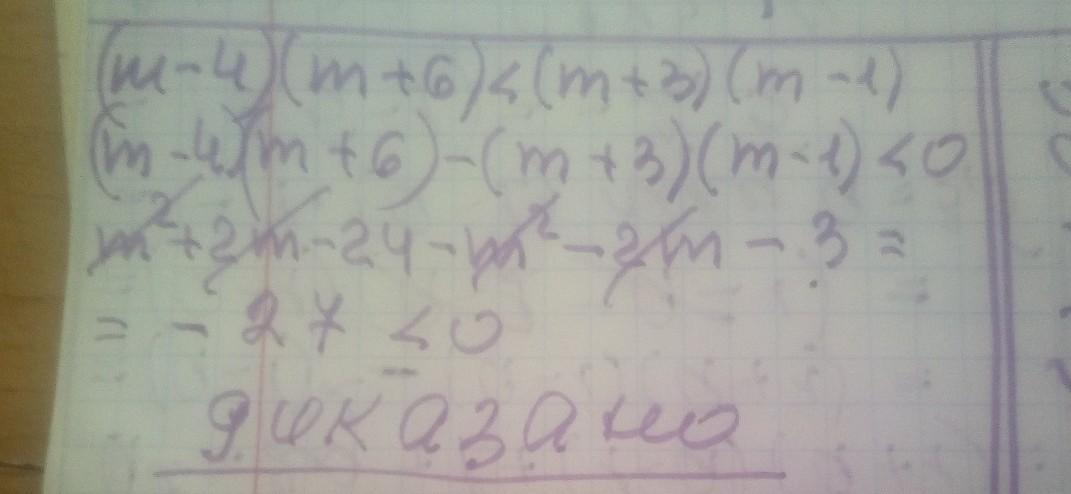 (m-4)(m+6)<(m+3)(m-1)
(m-4)(m+6)-(m+3)(m-1)<0
m²+2m-24-m²-2m-3=
=-27<0
доказано